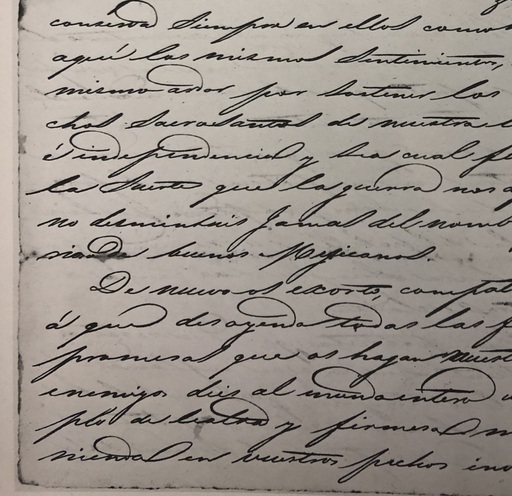 conserva siempre en ellos como
aquí los mismos sentimientos,
mismo ardor por sostener los
chos sacrosantos de nuestra
é independencia y sea cual
la suerte que la guerra nos
no desmintais jamas del nomb
de buenos Mejicanos.
De nuevo os exorto, compat
á que desoyendo todas las
promesas que os hagan nuest
enemigos deis al mundo entero
plo de lealtad y firmesa
niendo en vuestros pechos